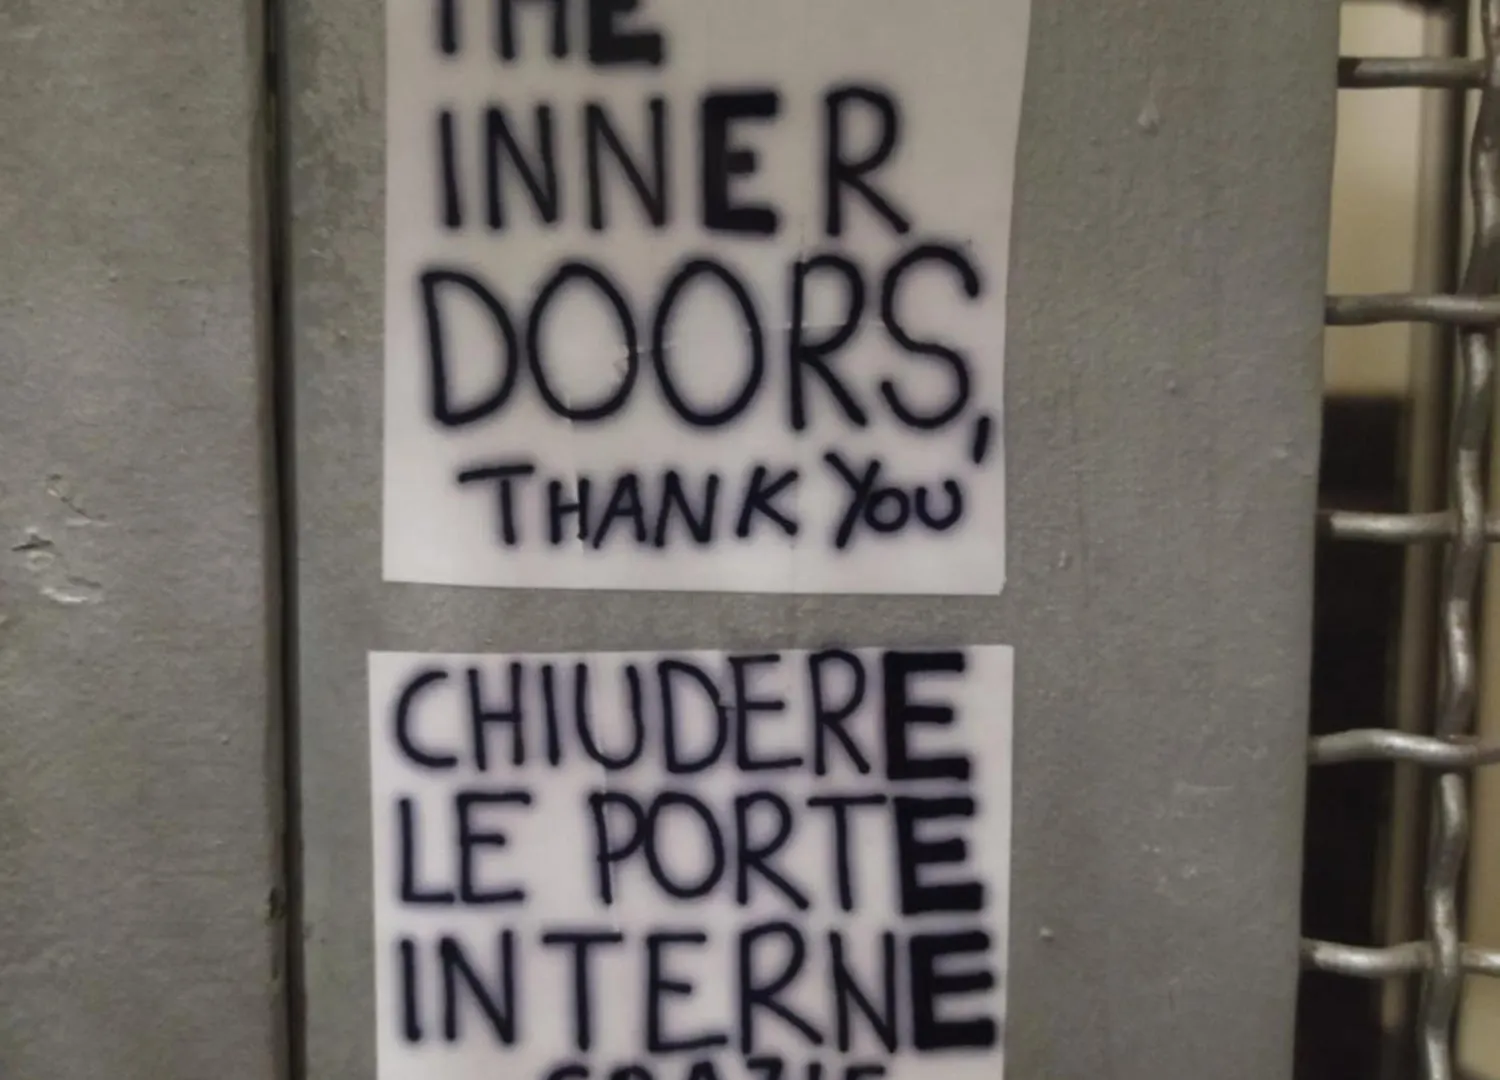 THE
INNER
DOORS,
THANK YOU
CHIUDERE
LE PORTE
INTERNE
GRAZIE